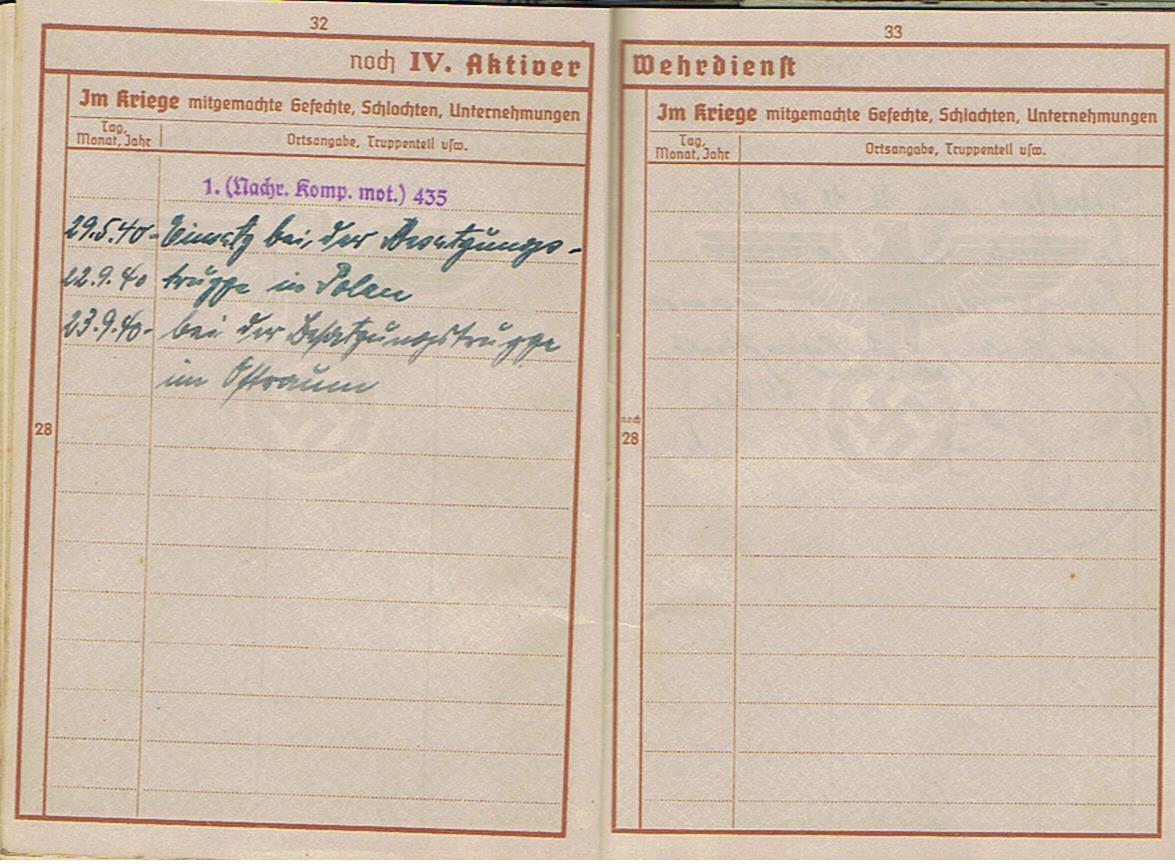 32
noch IV. Aktiver
Im Kriege mitgemachte Gefechte, Schlachten, Unternehmungen
Tag, Monat, Jahr
Ortsangabe, Truppenteil usw.
1. (Nachr. Komp. mot.) 435
29.5.40- Einsatz bei der Besatzungs-
22.9.40 truppe in Polen
23.9.40- bei der Besatzungstruppe
im Ostraum
28
33
Wehrdienst
Im Kriege mitgemachte Gefechte, Schlachten, Unternehmungen
Tag, Monat, Jahr
Ortsangabe, Truppenteil usw.
noch
28